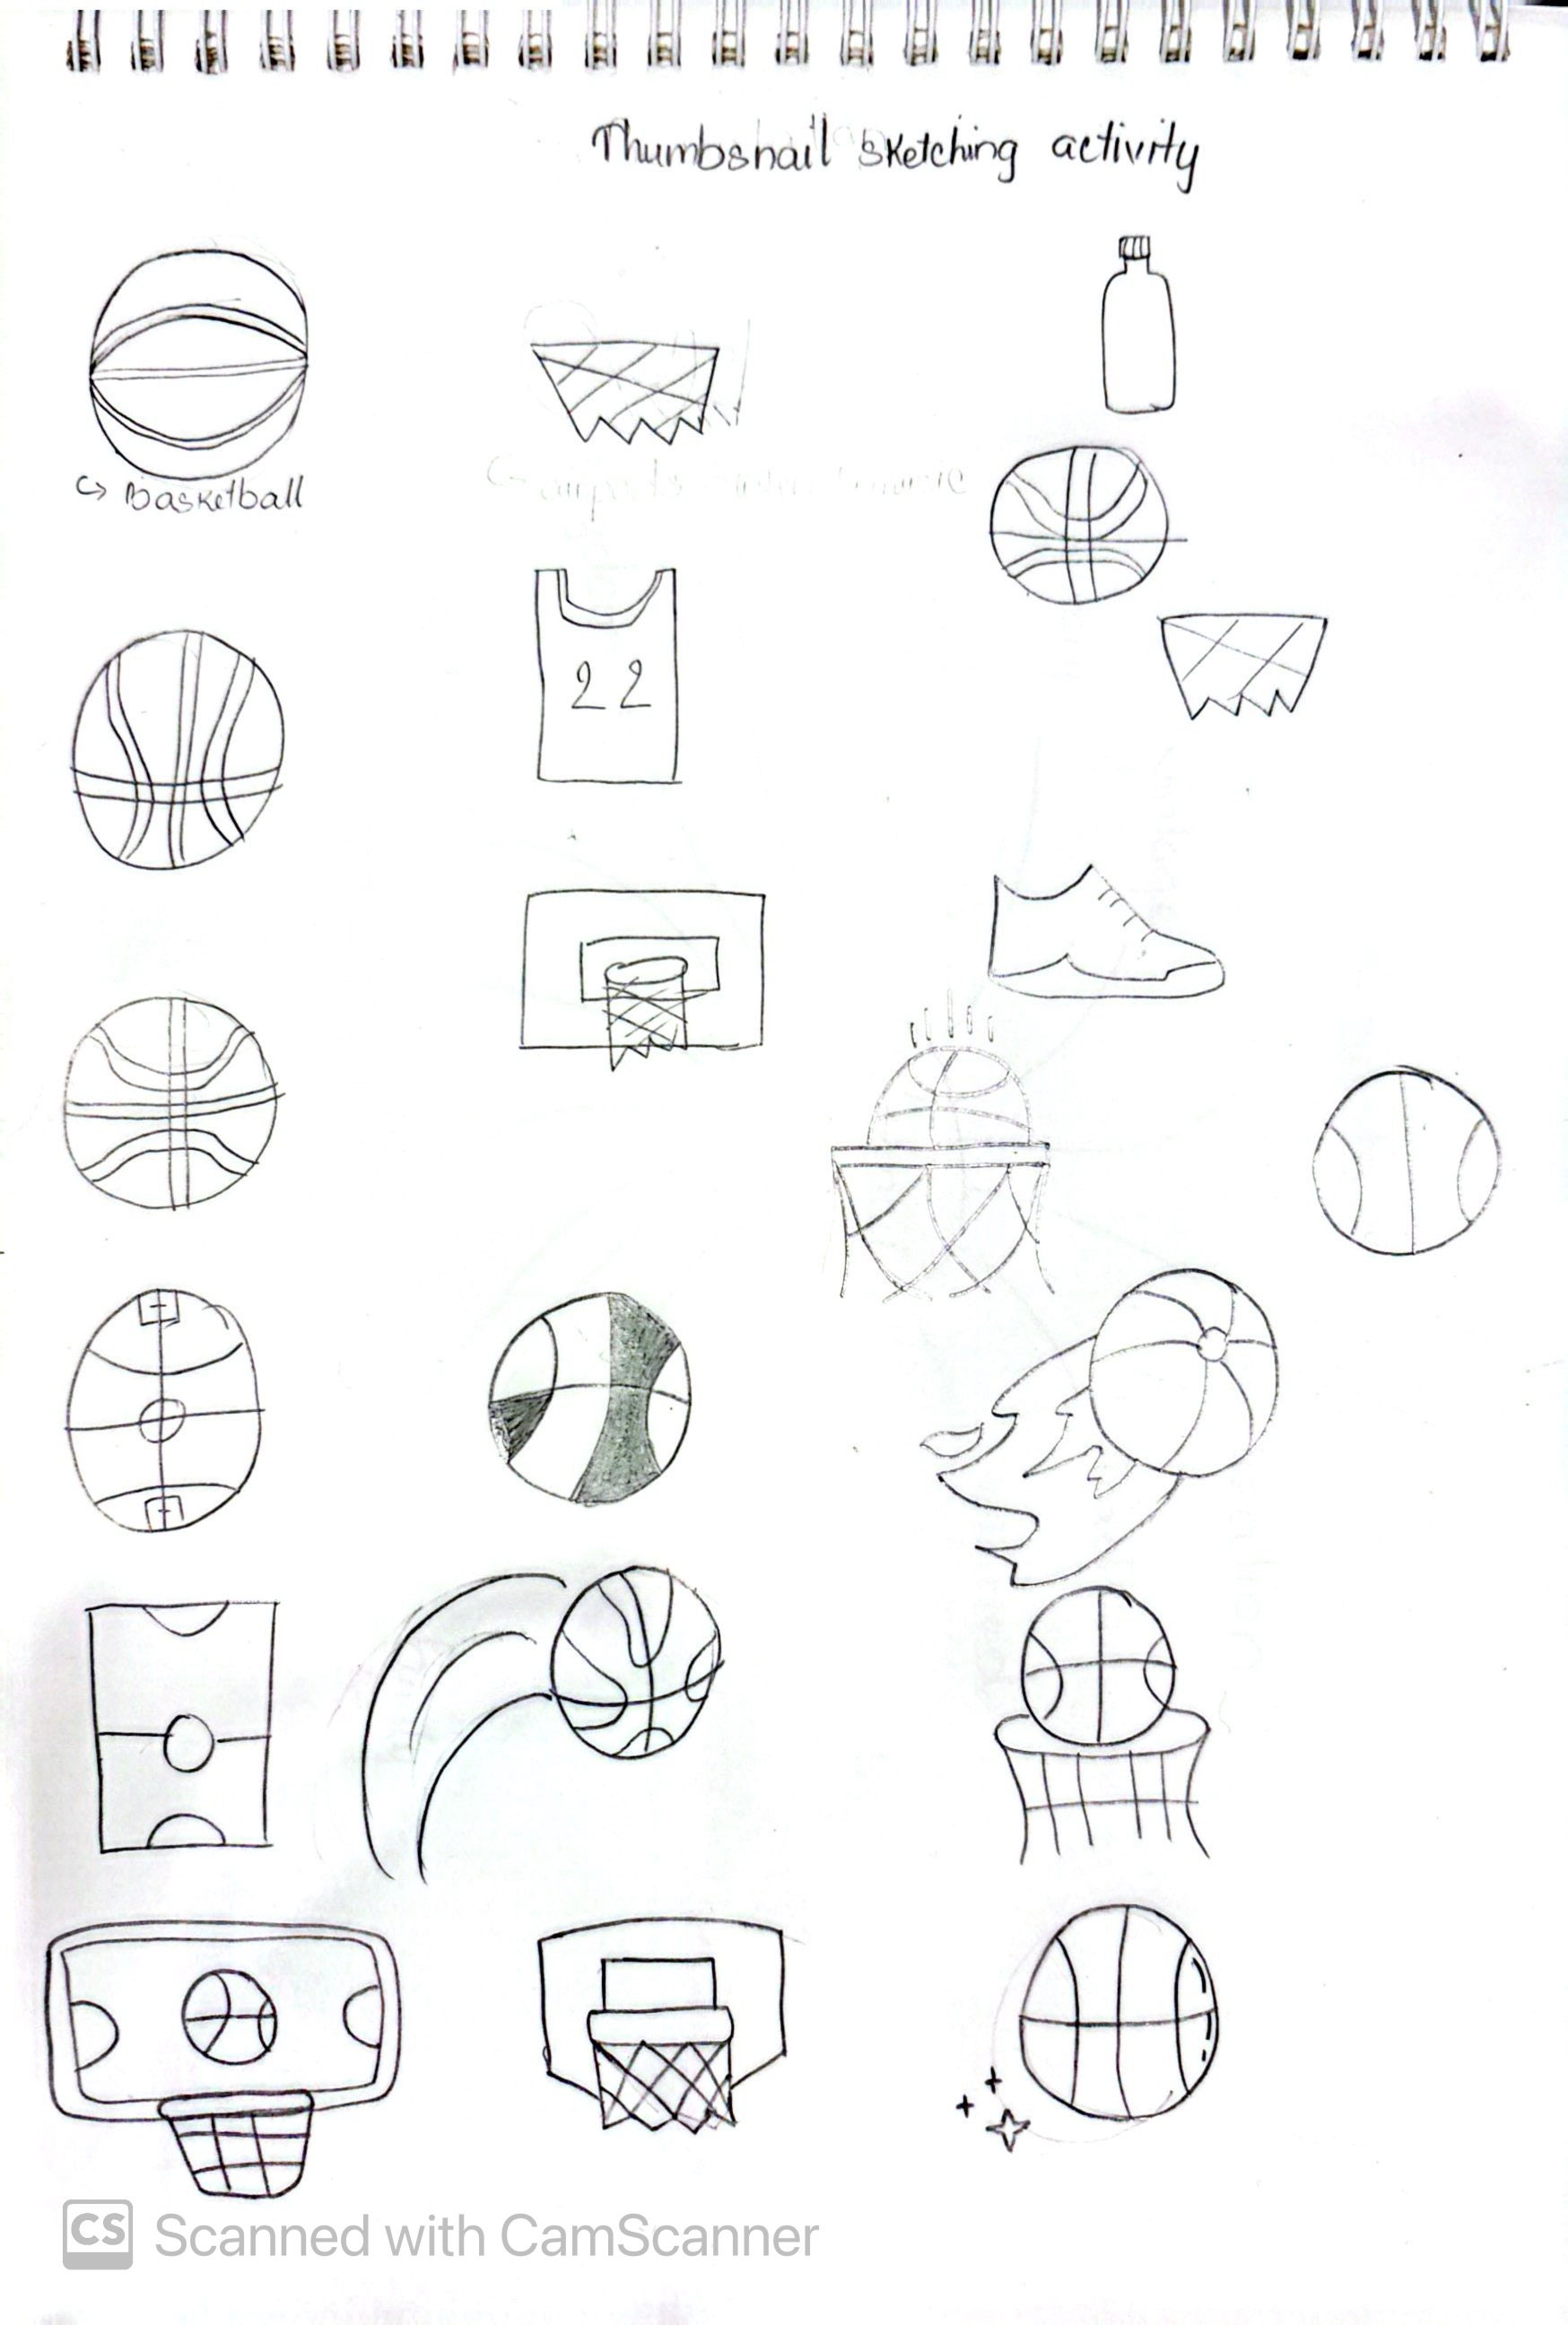 Thumbsnail sketching activity
↪ Basketball
22
CS Scanned with CamScanner